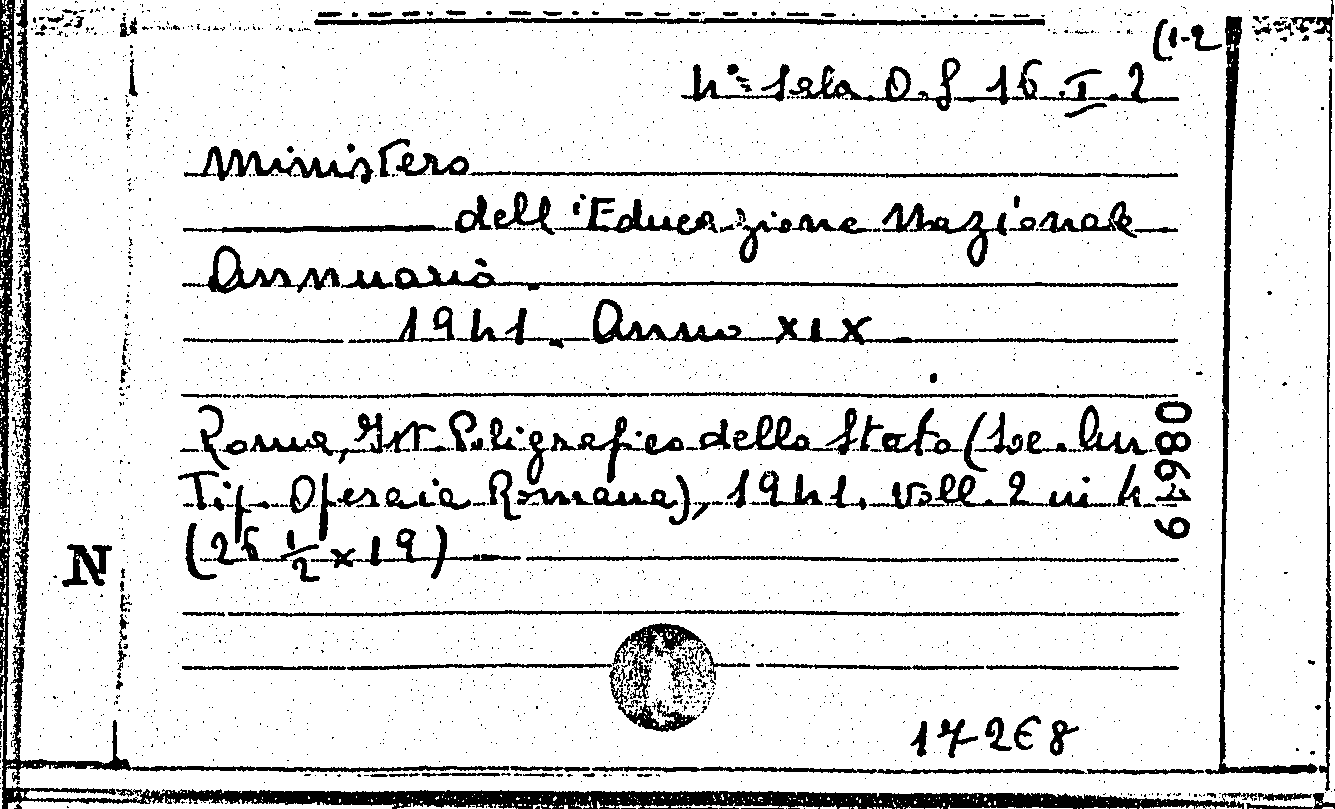 (1-2
N° Sala. O. S. 16. I. 2
Ministero
dell'Educazione Nazionale
Annuario.
1941. Anno XIX
Roma, Ist. Poligrafico dello Stato (Soc. An
Tip. Operaia Romana), 1941. voll. 2 in 4
(26 1/2 x 19)
N
17268